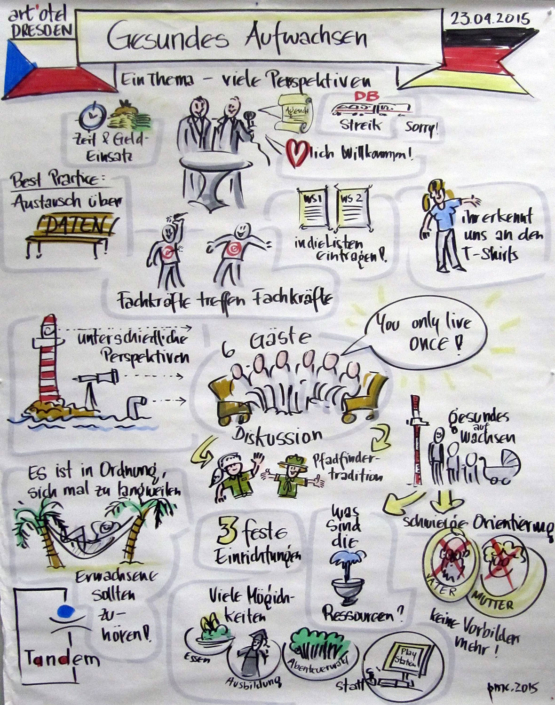 art'otel
DRESDEN
23.04.2015
Gesundes Aufwachsen
Ein Thema – viele Perspektiven
Zeit & Geld-
Einsatz
DB
Streik Sorry!
lich Willkommen!
Best Practice:
Austausch über
DATEN
WS1 WS2
in die Listen
eintragen!
ihr erkennt
uns an den
T-Shirts
Fachkräfte treffen Fachkräfte
unterschiedliche
Perspektiven
6 Gäste
You only live
ONCE!
Diskussion
Pfadfinder-
tradition
gesundes
auf
wachsen
Es ist in Ordnung,
sich mal zu langweilen
3 feste
Einrichtungen
Was
sind
die
Ressourcen?
schwierige Orientierung
VATER
MUTTER
keine Vorbilder
mehr!
Erwachsene
sollten
zu-
hören!
Tandem
Viele Möglich-
keiten
Essen
Ausbildung
Abenteuerwald
statt
Play
Station
pmc.2015